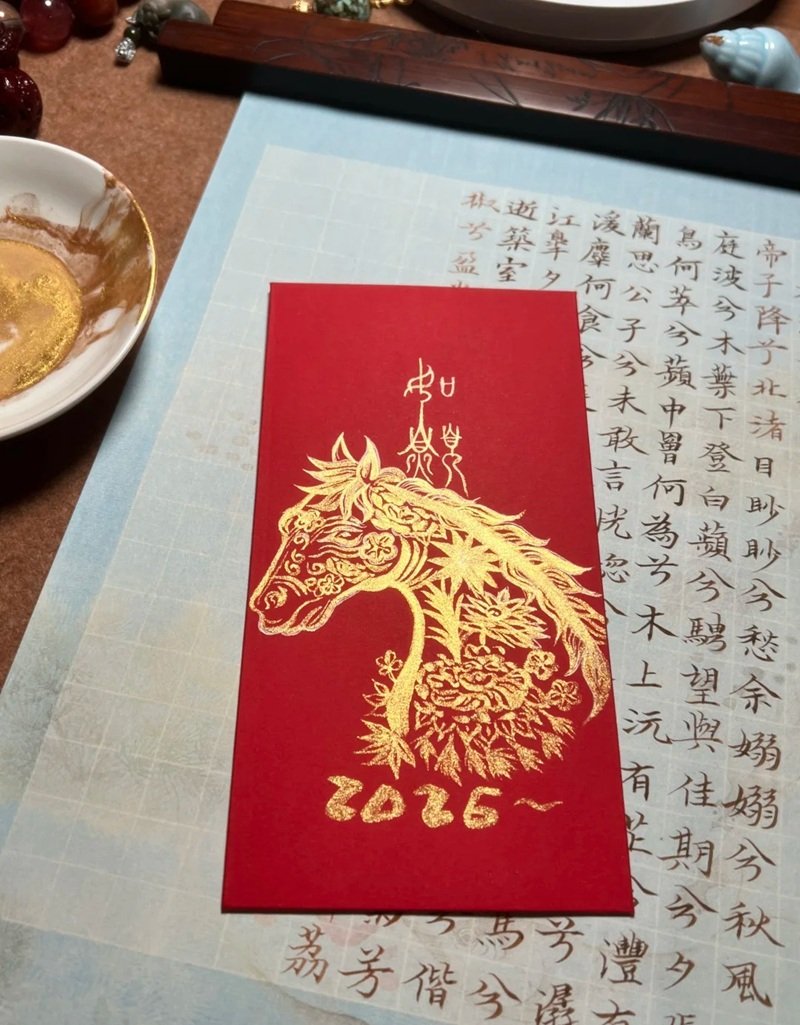 如願
2026~
帝子降兮北渚目眇眇兮愁余嫋嫋兮秋風
庭波兮木葉下登白蘋兮騁望與佳期兮夕張
鳥何萃兮蘋中罾何為兮木上沅有芷兮澧有
蘭思公子兮未敢言恍惚兮
兮潺
湲麋何食兮
馬兮
江皋夕
兮偕
逝築室
芳
椒兮盈
荔